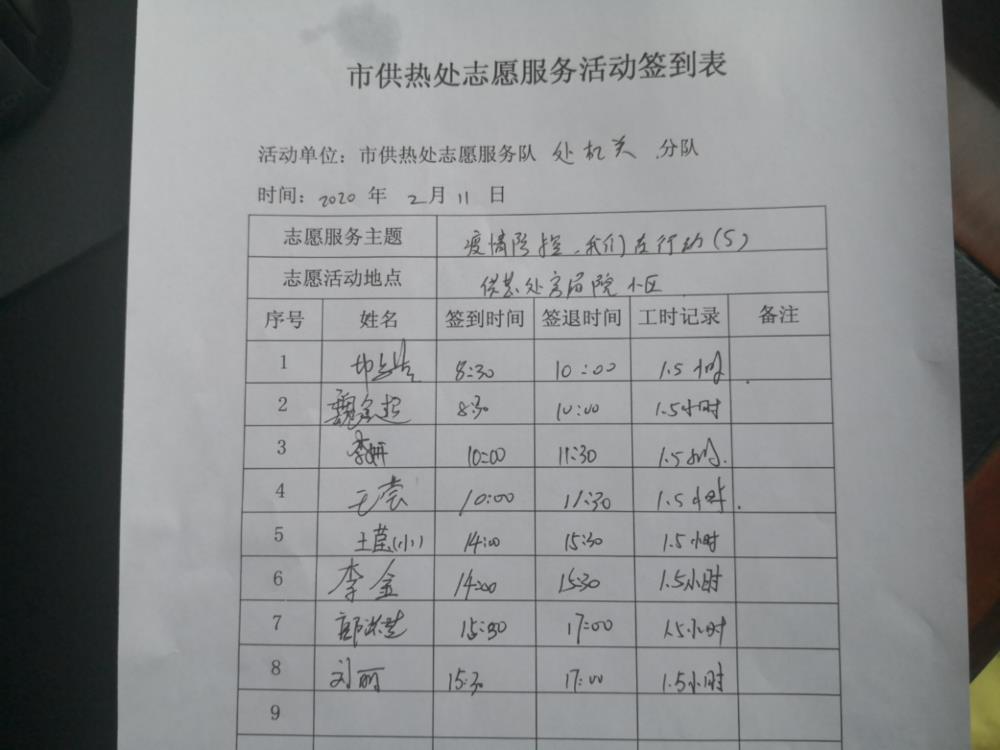 市供热处志愿服务活动签到表
活动单位：市供热处志愿服务队 处机关 分队
时间：2020 年 2月 11 日
志愿服务主题 疫情防控，我们在行动(5)
志愿活动地点 供热处房后院小区
序号 姓名 签到时间 签退时间 工时记录 备注
1 8:30 10:00 1.5小时
2 8:30 10:00 1.5小时
3 李妍 10:00 11:30 1.5小时.
4 10:00 11:30 1.5小时.
5 14:00 15:30 1.5小时
6 李金 14:00 15:30 1.5小时
7 15:30 17:00 1.5小时
8 刘丽 15:30 17:00 1.5小时
9